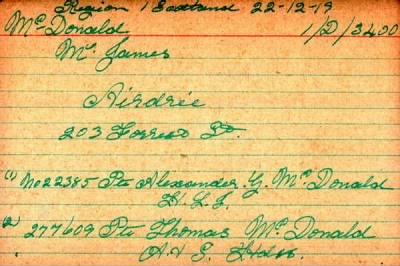 Region 1 Scotland 22-12-19
McDonald 1/D/3400
Mr. James
Airdrie
203 Forrest St.
(1) No 22385 Pte Alexander. G. McDonald
H. L. I.
(2) 277609 Pte Thomas McDonald
A & S. Hdrs.